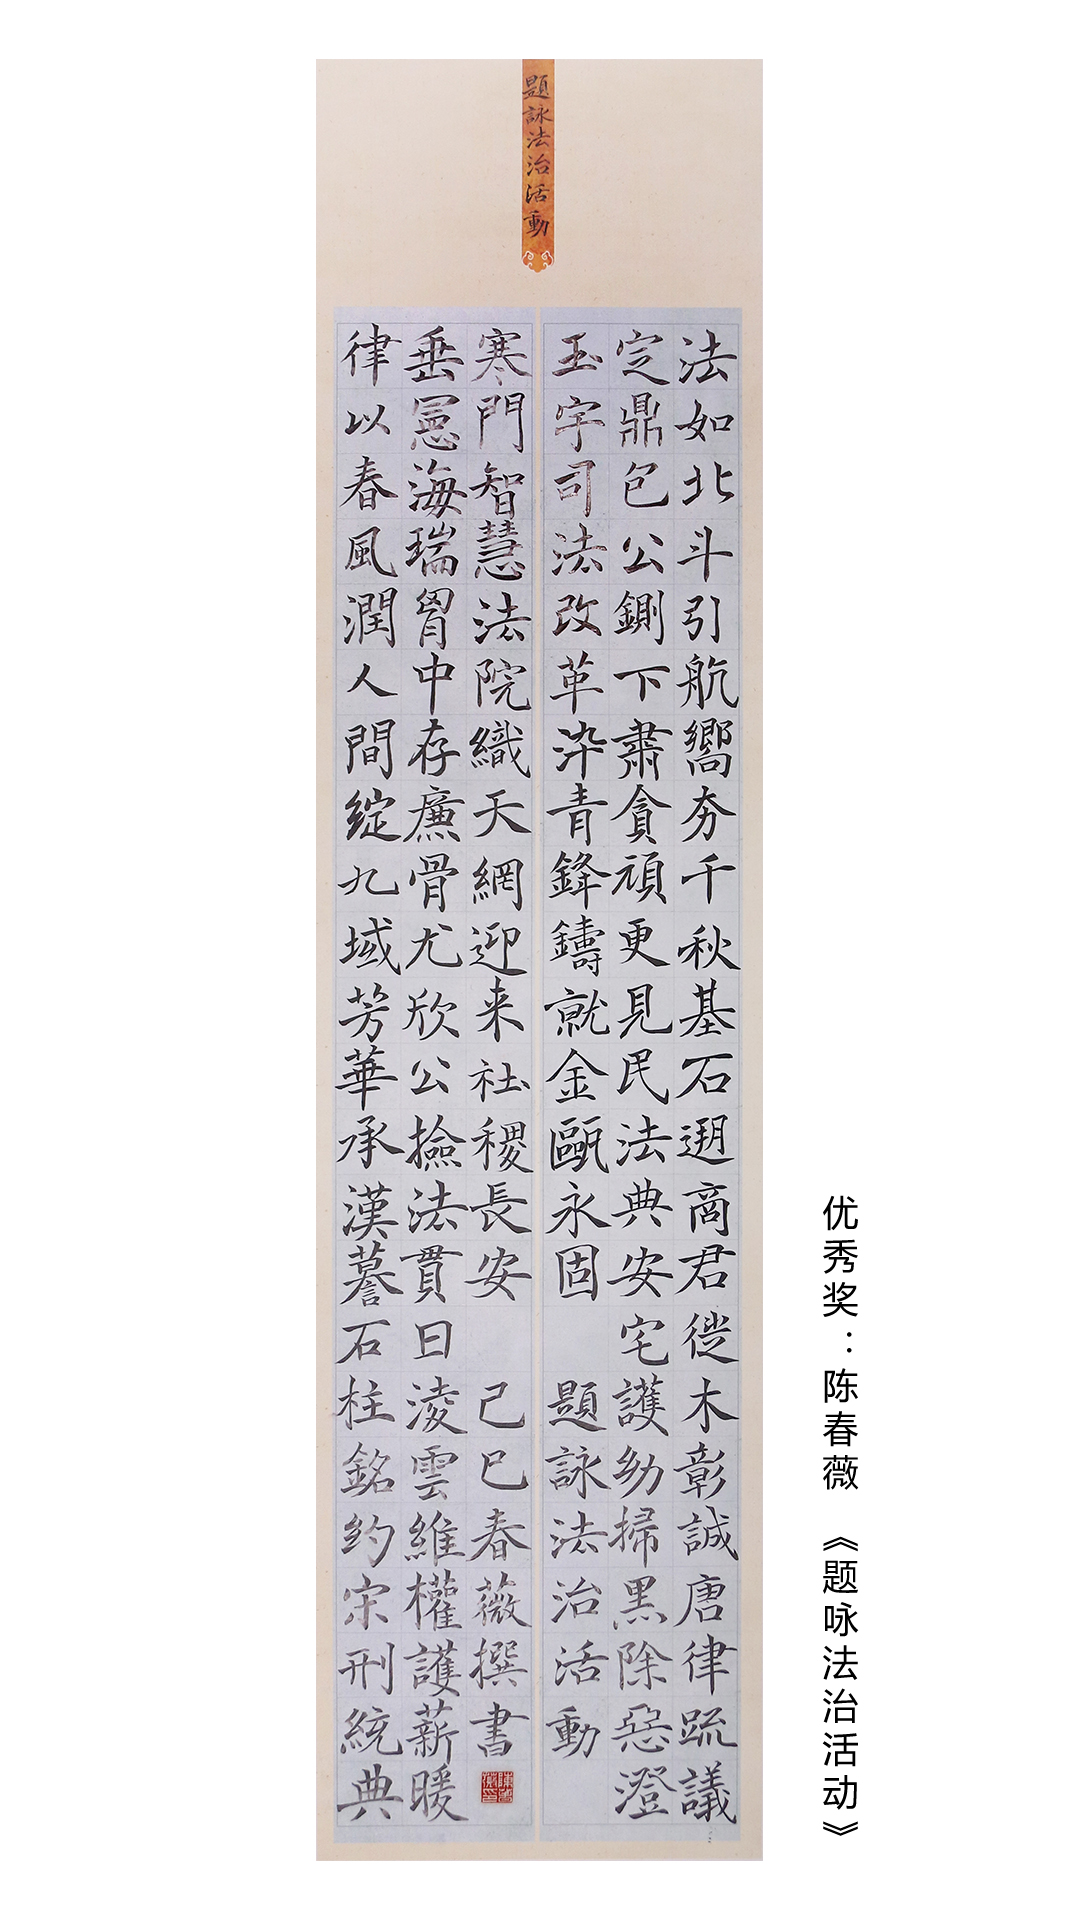 題詠法治活動
法如北斗引航嚮夯千秋基石遡商君徙木彰誠唐律疏議
定鼎包公鍘下肅貪頑更見民法典安宅護幼掃黑除惡澄
玉宇司法改革淬青鋒鑄就金甌永固 題詠法治活動
律以春風潤人間綻九域芳華承漢謩石柱銘約宋刑統典
垂憲海瑞胷中存廉骨尤欣公撿法貫日淩雲維權護薪暖
寒門智慧法院織天網迎来社稷長安 己巳春薇撰書
优秀奖：陈春薇 《题咏法治活动》